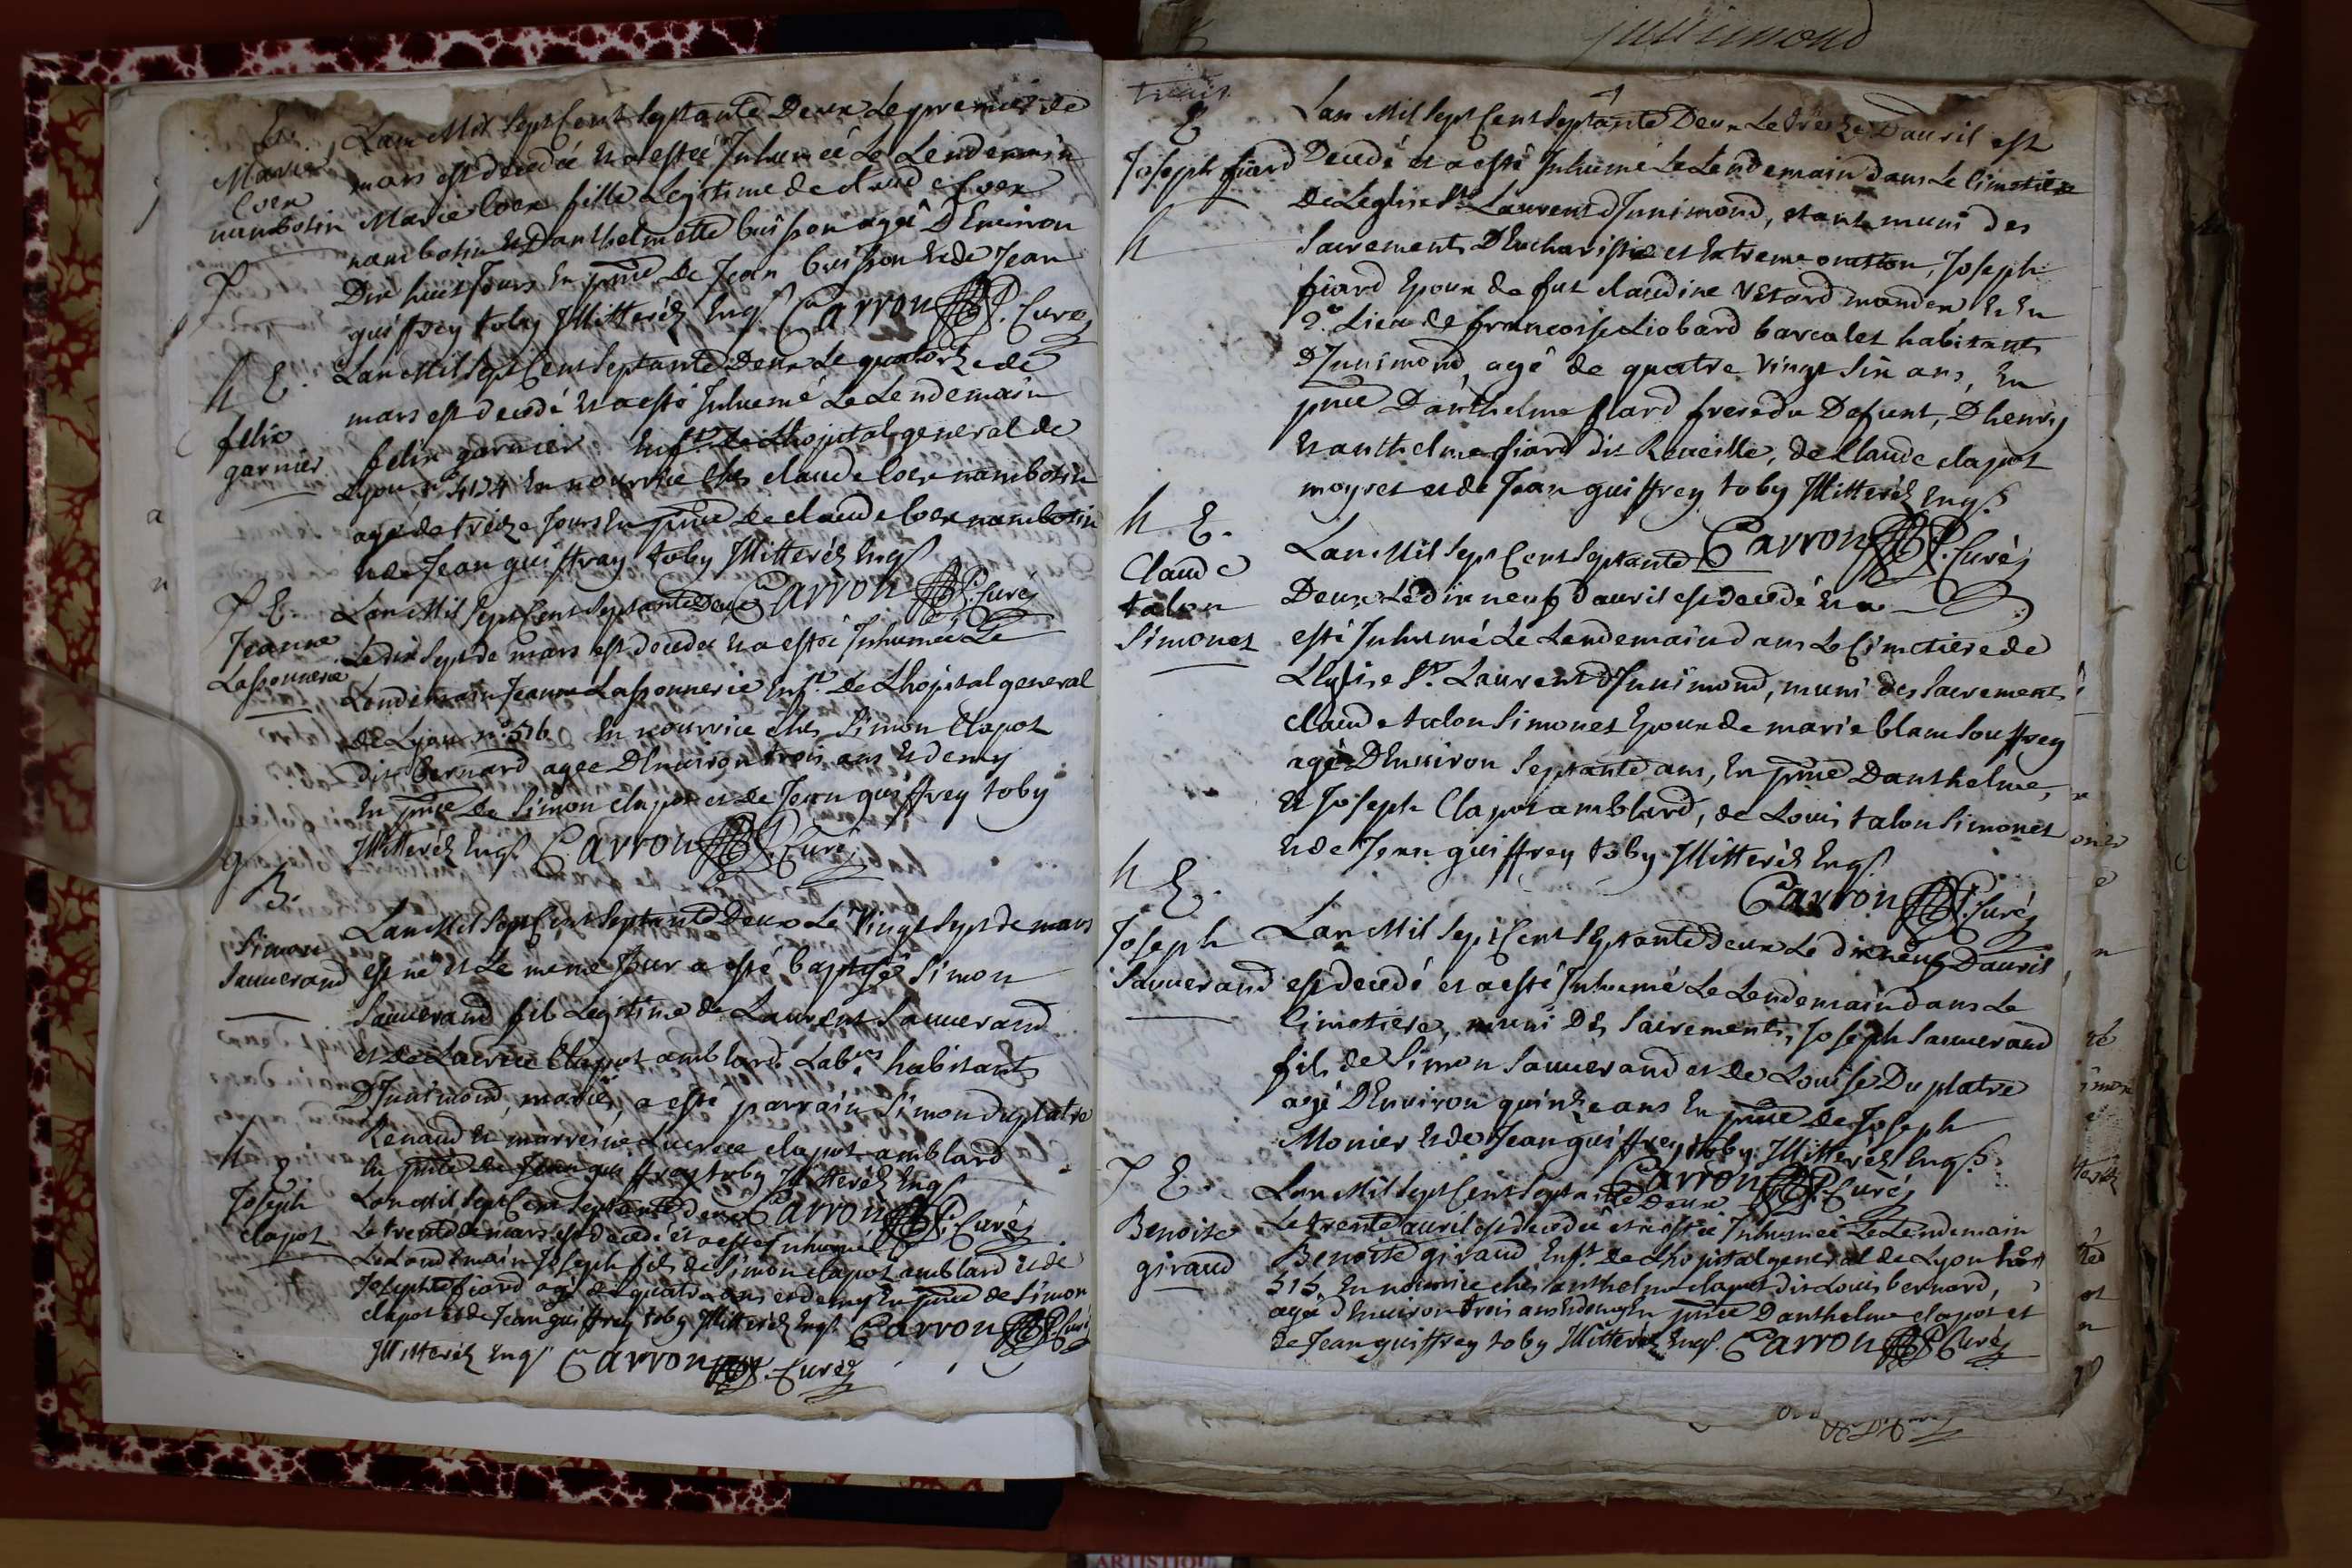 E.
Marie
Coex
nambotin
Lan Mil Sept Cent Septante Deux Le premier de
mars est decedée Et a estée Inhumée Le Lendemain
Marie Coex fille Legitime de claude Coex
nambotin Et Danthelmette buisson agée DEnviron
Dix huit Jours En pnce De Jean buisson Et de Jean
guiffrey toby Illitteréz Enqs Carron P. Curé
h E.
felix
garnier
Lan Mil Sept Cent Septante Deux Le quatorze de
mars est decedé Et a esté Inhumé Le Lendemain
felix garnier Enft de Lhopital general de
Lyon no 4124 En nourrice chés claude Coex nambotin
agé de treize Jours En pnce De claude Coex nambotin
et de Jean guiffray toby Illitteréz Enqs
Carron P. Curé
f E.
Jeanne
Lassonnerie
Lan Mil Sept Cent Septante Deux
Le dix Sept de mars est decedée Et a estée Inhumée Le
Lendemain Jeanne Lassonnerie Enft De Lhopital general
de Lyon no 516 En nourrice chés Simon Clapot
dit bernard agee DEnviron trois ans Et demy
En pnce De Simon clapot et de Jean guiffrey toby
Illitteréz Enqs Carron P. Curé
g
B.
Simon
Sauverand
Lan Mil Sept Cent Septante Deux Le Vingt Sept de mars
est né et Le meme Jour a esté baptisé Simon
Sauverand fils Legitime de Laurent Sauverand
et de Lucrece Clapot amblard Labrs habitants
DJnnimond, mariés, a esté parrain Simon Duplatre
Renaud Et marreine Lucrece clapot amblard
En pnce de Jean guiffrey toby Illitteréz Enqs
Carron P. Curé
h E.
Joseph
clapot
Lan Mil Sept Cent Septante deux
Le trente de mars est decedé et a esté Inhumé
Le Lendemain Joseph fils de Simon clapot amblard et de
Josephte fiard agé de quatre ans et demy En pnce de Simon
clapot et de Jean guiffrey toby Illitteréz Enqs Carron P. Curé
Illitteréz Enqs Carron P. Curéz
E
Joseph fiard
h
Lan Mil Sept Cent Septante Deux Le treize Davril est
Decedé et a esté Inhumé Le Lendemain dans Le Cimetiere
De Leglise St Laurent DJnnimond, etant muni des
Sacrements DEucharistie et Extreme onction, Joseph
fiard Epoux de fut claudine Vetard mander Et En
2e Lieu de francoise Liobard barcalet habitants
DJnnimond, agé de quatre Vingt Six ans, En
pnce Danthelme fiard frere du Defunt, Dhenry
Et anthelme fiard dit Reveille, de Claude clapot
moyret et de Jean guiffrey toby Illitteréz Enqs
Carron P. Curé
h E.
Claude
talon
Simonet
Lan Mil Sept Cent Septante
Deux Le dix neuf davril est decedé Et a
esté Inhumé Le Lendemain dans Le Cimetiere de
LEglise St Laurent DJnnimond, muni des Sacrements
claude talon Simonet Epoux de marie blam Souffrey
agé DEnviron Septante ans, En pnce Danthelme,
Et Joseph Clapot amblard, de Louis talon Simonet
Et de Jean guiffrey toby Illitteréz Enqs
Carron P. Curé
h E.
Joseph
Sauverand
Lan Mil Sept Cent Septante deux Le dix neuf Davril
est decedé et a esté Inhumé Le Lendemain dans Le
Cimetiere, muni Des Sacrements, Joseph Sauverand
fils de Simon Sauverand et De Louise Duplatre
agé DEnviron quinze ans En pnce De Joseph
Monier Et de Jean guiffrey toby Illitteréz Enqs
Carron P. Curé
f E.
Benoite
giraud
Lan Mil Sept Cent Septante Deux
Le trente avril est decedée et a estée Inhumée Le Lendemain
Benoite giraud Enft de Lhopital general de Lyon
515 En nourrice chés anthelme clapot dit Louis bernard,
agée dEnviron trois ans Et demy En pnce Danthelme clapot et
de Jean guiffrey toby Illitteréz Enqs. Carron P. Curé
ARTISTIQUE